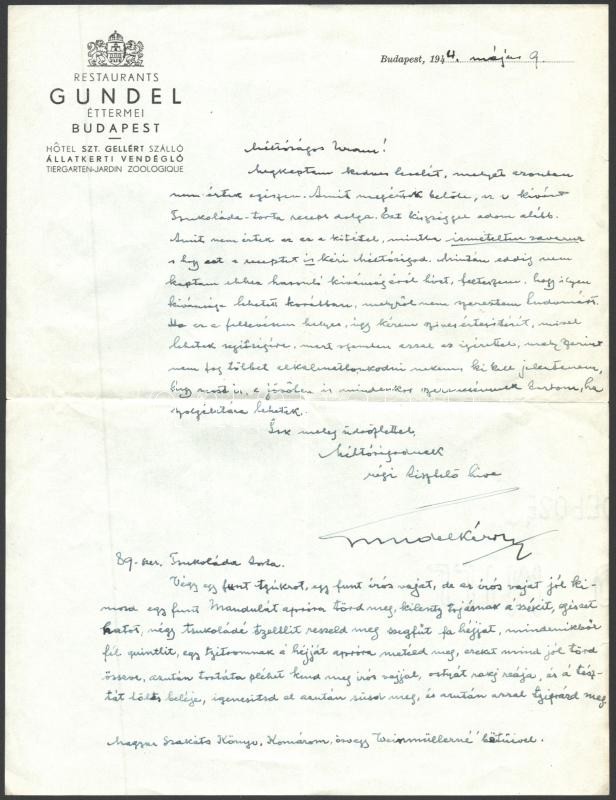 RESTAURANTS
GUNDEL
ÉTTERMEI
BUDAPEST
HÔTEL SZT. GELLÉRT SZÁLLÓ
ÁLLATKERTI VENDÉGLŐ
TIERGARTEN-JARDIN ZOOLOGIQUE
Budapest, 1944. május 9.
Méltóságos Uram!
Megkaptam kedves levelét, melyet azonban
nem értek egészen. Amit megértek belőle, az a kívánt
Tsukoláda-torta recept dolga. Ezt készséggel adom alább.
Amit nem értek az az a kitétel, mintha ismételten zavarna
s hogy ezt a receptet is kéri Méltóságod. Miután eddig nem
kaptam ehhez hasonló kívánságáról hírt, felteszem, hogy ilyen
kívánsága lehetett korábban, melyről nem szereztem tudomást.
Ha ez a feltevésem helyes, úgy kérem szíves értesítését, mivel
lehetek segítségére, mert szemben azzal az ígérettel, mely szerint
nem fog többet alkalmatlankodni nekem ki kell jelentenem,
hogy most is, a jövőben is mindenkor szerencsémnek tartom, ha
szolgálatára lehetek.
Sok meleg üdvözlettel,
Méltóságodnak
régi tisztelő híve
Gundel Károly
89-szer. Tsukoláda torta.
Végy egy funt tzukrot, egy funt írós vajat, de az írós vajat jól ki-
mosd egy funt Mandulát apróra törd meg, kilentz tojásnak a székit, egészet
hatot, négy tsukoládé tzeltlit resseld meg szegfüt fa héjjat, mindenikből
fél quintlit, egy tzitromnak a héjját apróra metéld meg, ezeket mind jól törd
össove, azután tortáta pléhet kend meg írós vajjal, ostyát rakj reája, és á tész-
tát tölts beléje, igenesitsd el azután süsd meg, és azután azzal tzipräzd meg.
Magyar Szakáts Könyv, Komárom, özvegy Weinmüllerné betűivel.